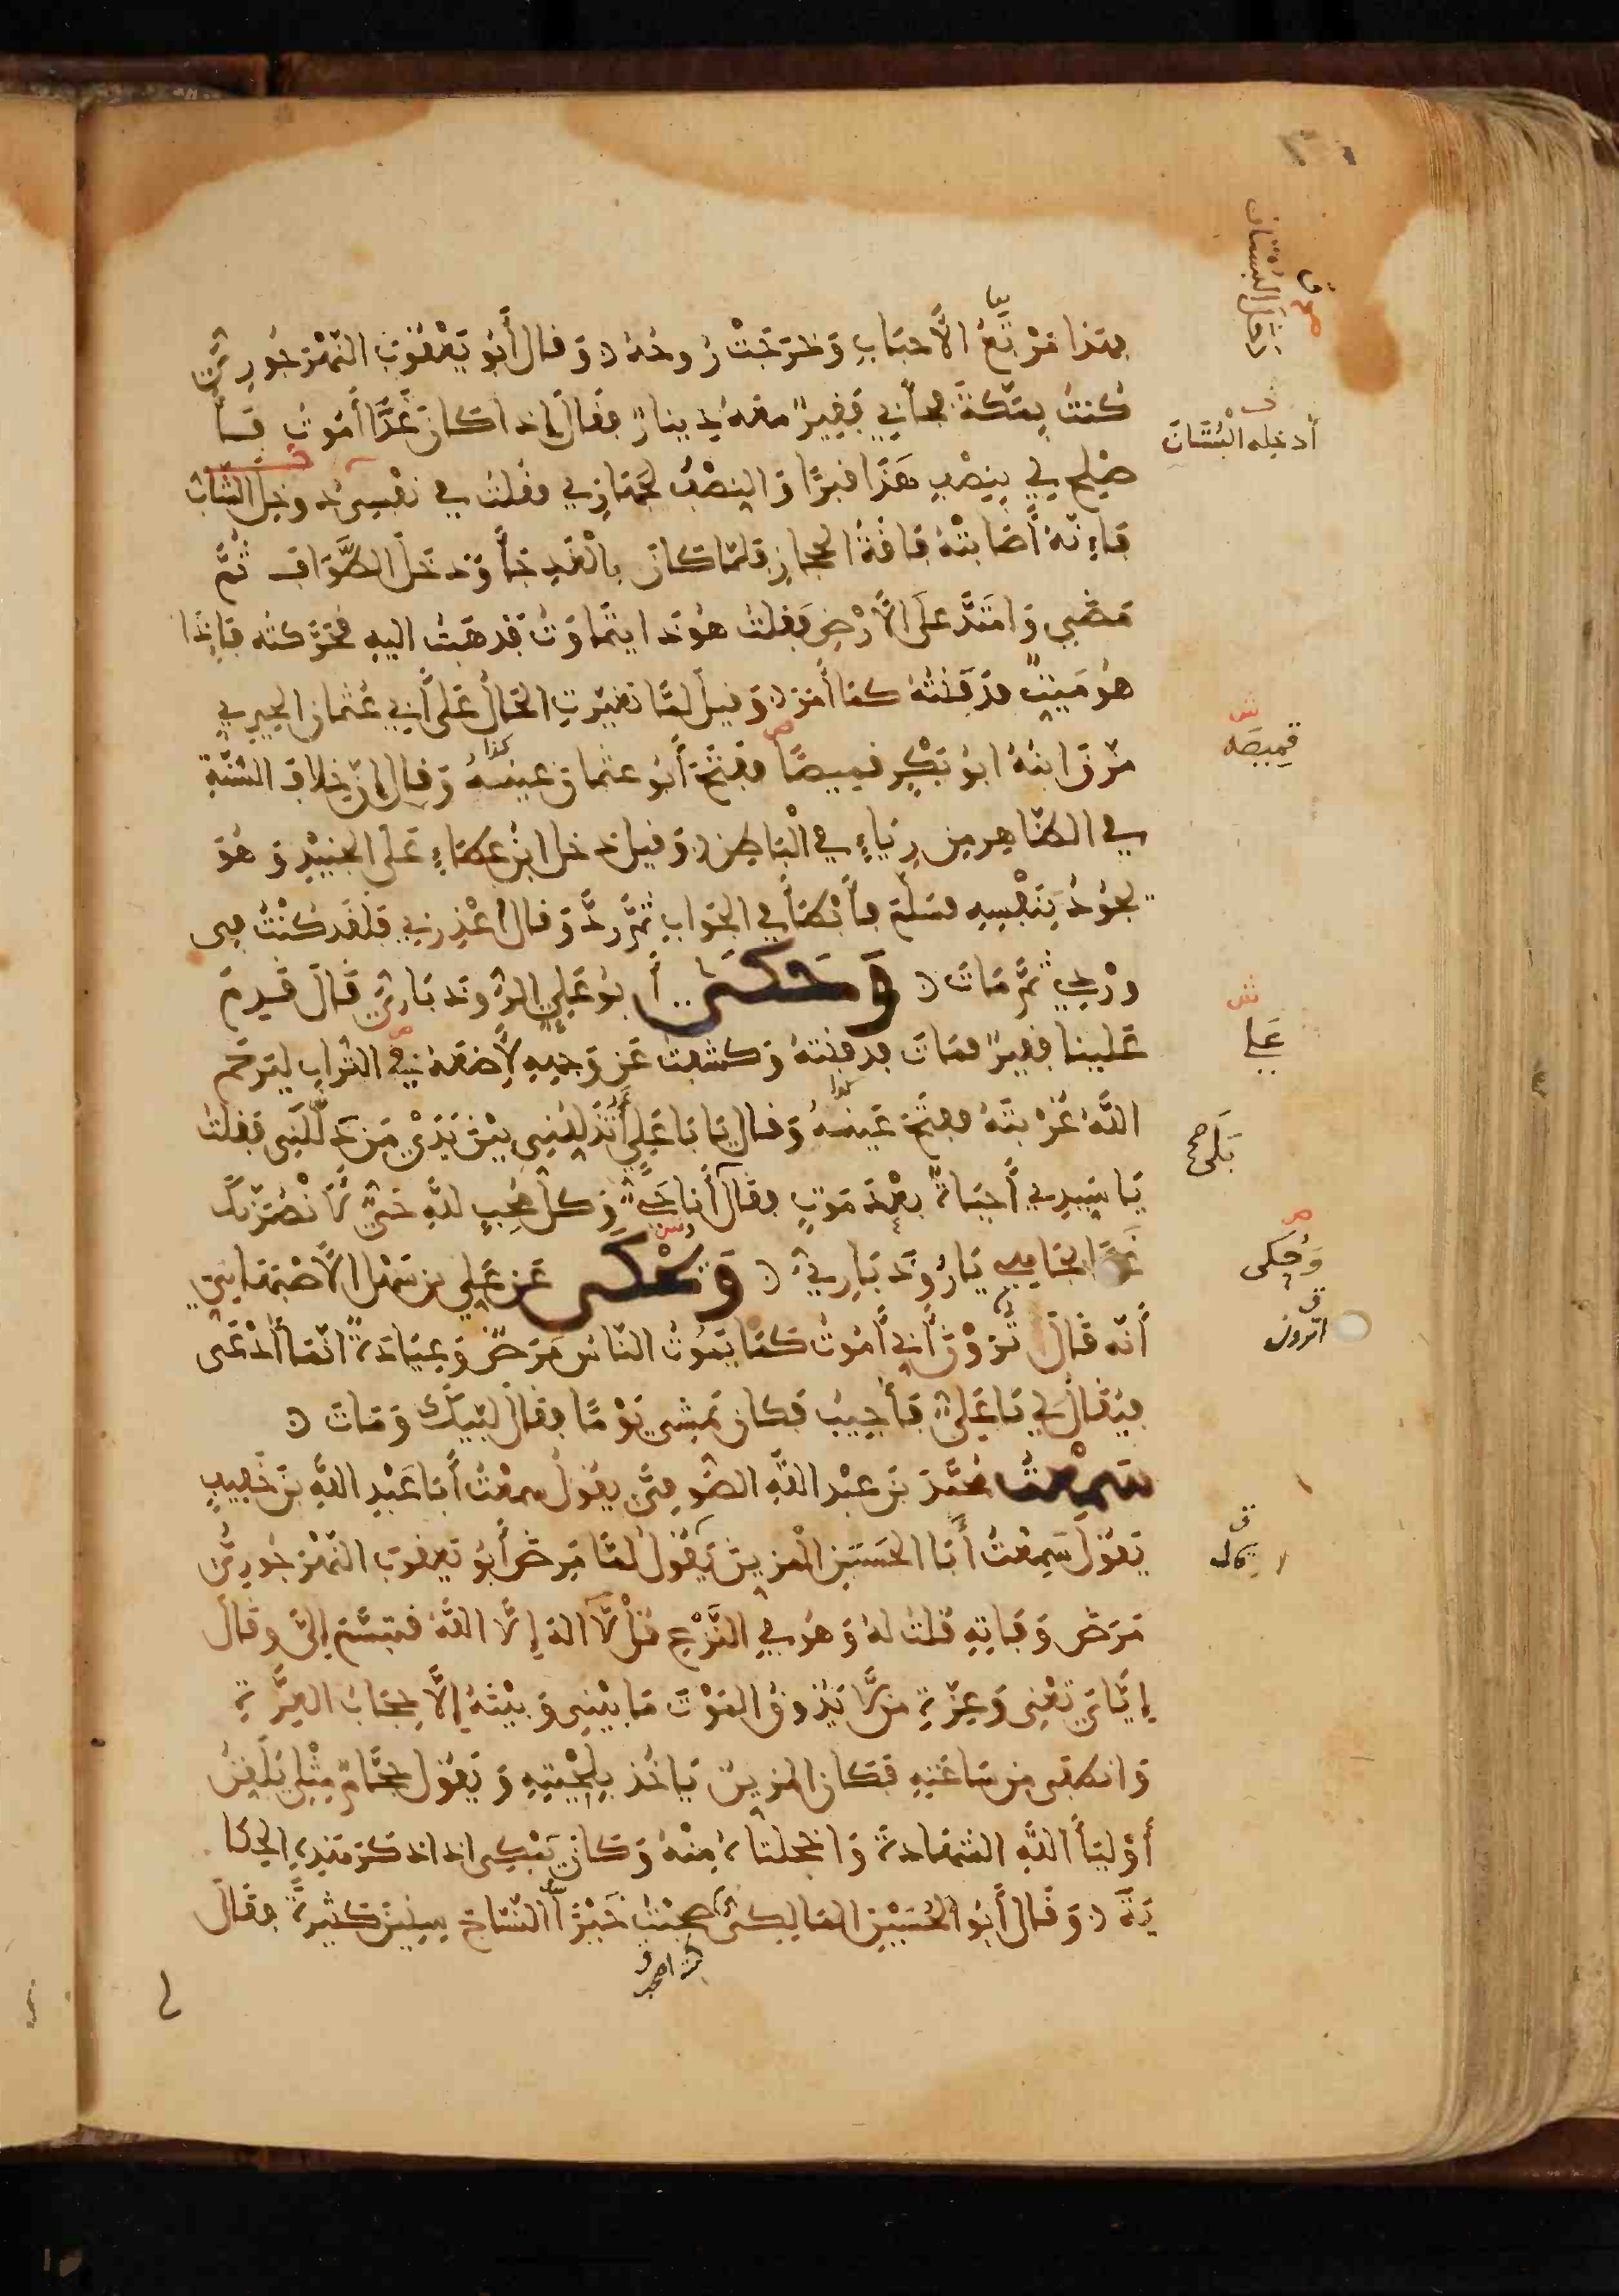 فهذا مرتع الأحباب وخرجت روحه وقال أبو يعقوب النهرجوري
كنت بمكة فجأني فقير معه دينار فقال إذا كان غدا أموت فأ
صلح لي بنصف هذا قبرا والنصف لجهازي فقلت في نفسي دوخل الشاب
فإنه أصابته فاقة الحجاز فلما كان بالغد جأ ودخل الطواف ثم
مضى وامتد على الأرض فقلت هو ذا يتماوت فذهبت اليه فحركته فإذا
هو ميت فدفنته كما أمر وقيل لما تغيرت الحال على أبي عثمان الحيري
مزق ابنه ابو بكر قميصا ففتح أبو عثمان عينه وقال إن خلاف السنة
في الظاهر من رياء في الباطن وقيل دخل ابن عطاء على الجنيد وهو
يجود بنفسه فسلم فأبطأ في الجواب ثم رد وقال اعذرني فلقد كنت في
وردي ثم مات وحكى أبو علي الروذباري قال قدم
علينا فقير فمات فدفنته وكشفت عن وجهه لأضعه في التراب ليرحم
الله غربته ففتح عينه وقال يا با علي أتذللني بين يدي من دللني فقلت
يا سيدي أحياة بعد موت فقال أنا حي وكل محب لله حي لأنصرنك
غدا بجاهي يا روذباري وحكى عن علي بن سهل الأصبهاني
أنه قال ترون أني أموت كما يموت الناس مرض وعيادة انما أدعى
فيقال لي يا علي فأجيب فكان يمشي يوما فقال لبيك ومات
سمعت محمد بن عبد الله الصوفي يقول سمعت أبا عبد الله بن خفيف
يقول سمعت أبا الحسن المزين يقول لما مرض أبو يعقوب النهرجوري
مرض وفاته قلت له وهو في النزع قل لا اله إلا الله فتبسم إلي وقال
إياي تعني وعزة من لا يذوق الموت ما بيني وبينه إلا حجاب العزة
وانطفى من ساعته فكان المزين يأخذ بلحيته ويقول حجام مثلي يلقن
أوليأ الله الشهادة واخجلتاه منه وكان يبكي اذا ذكر هذه الحكا
ية وقال أبو الحسين المالكي صحبت خيرا النساج سنين كثيرة فقال
رجل البستان
أدخله البستان
قميصه
علي
بلى صح
وحكى
اترون